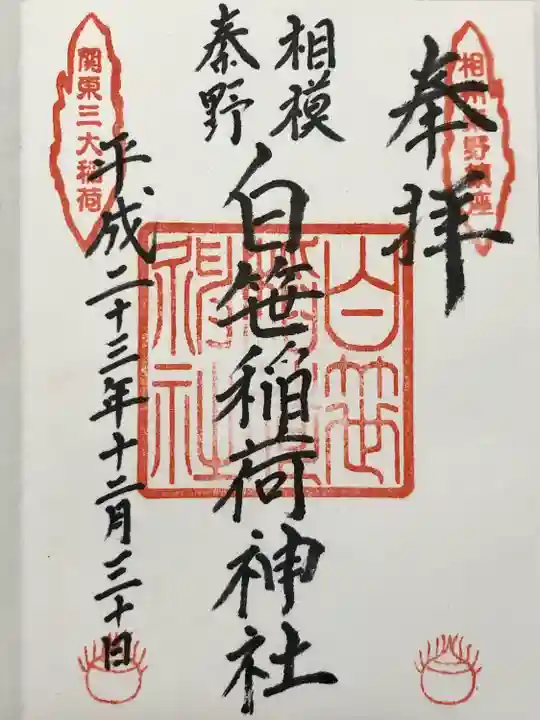 奉拝
相州秦野鎮座
相模
秦野
白笹稲荷神社
白笹
稲荷
神社
平成二十三年十二月三十日
関東三大稲荷